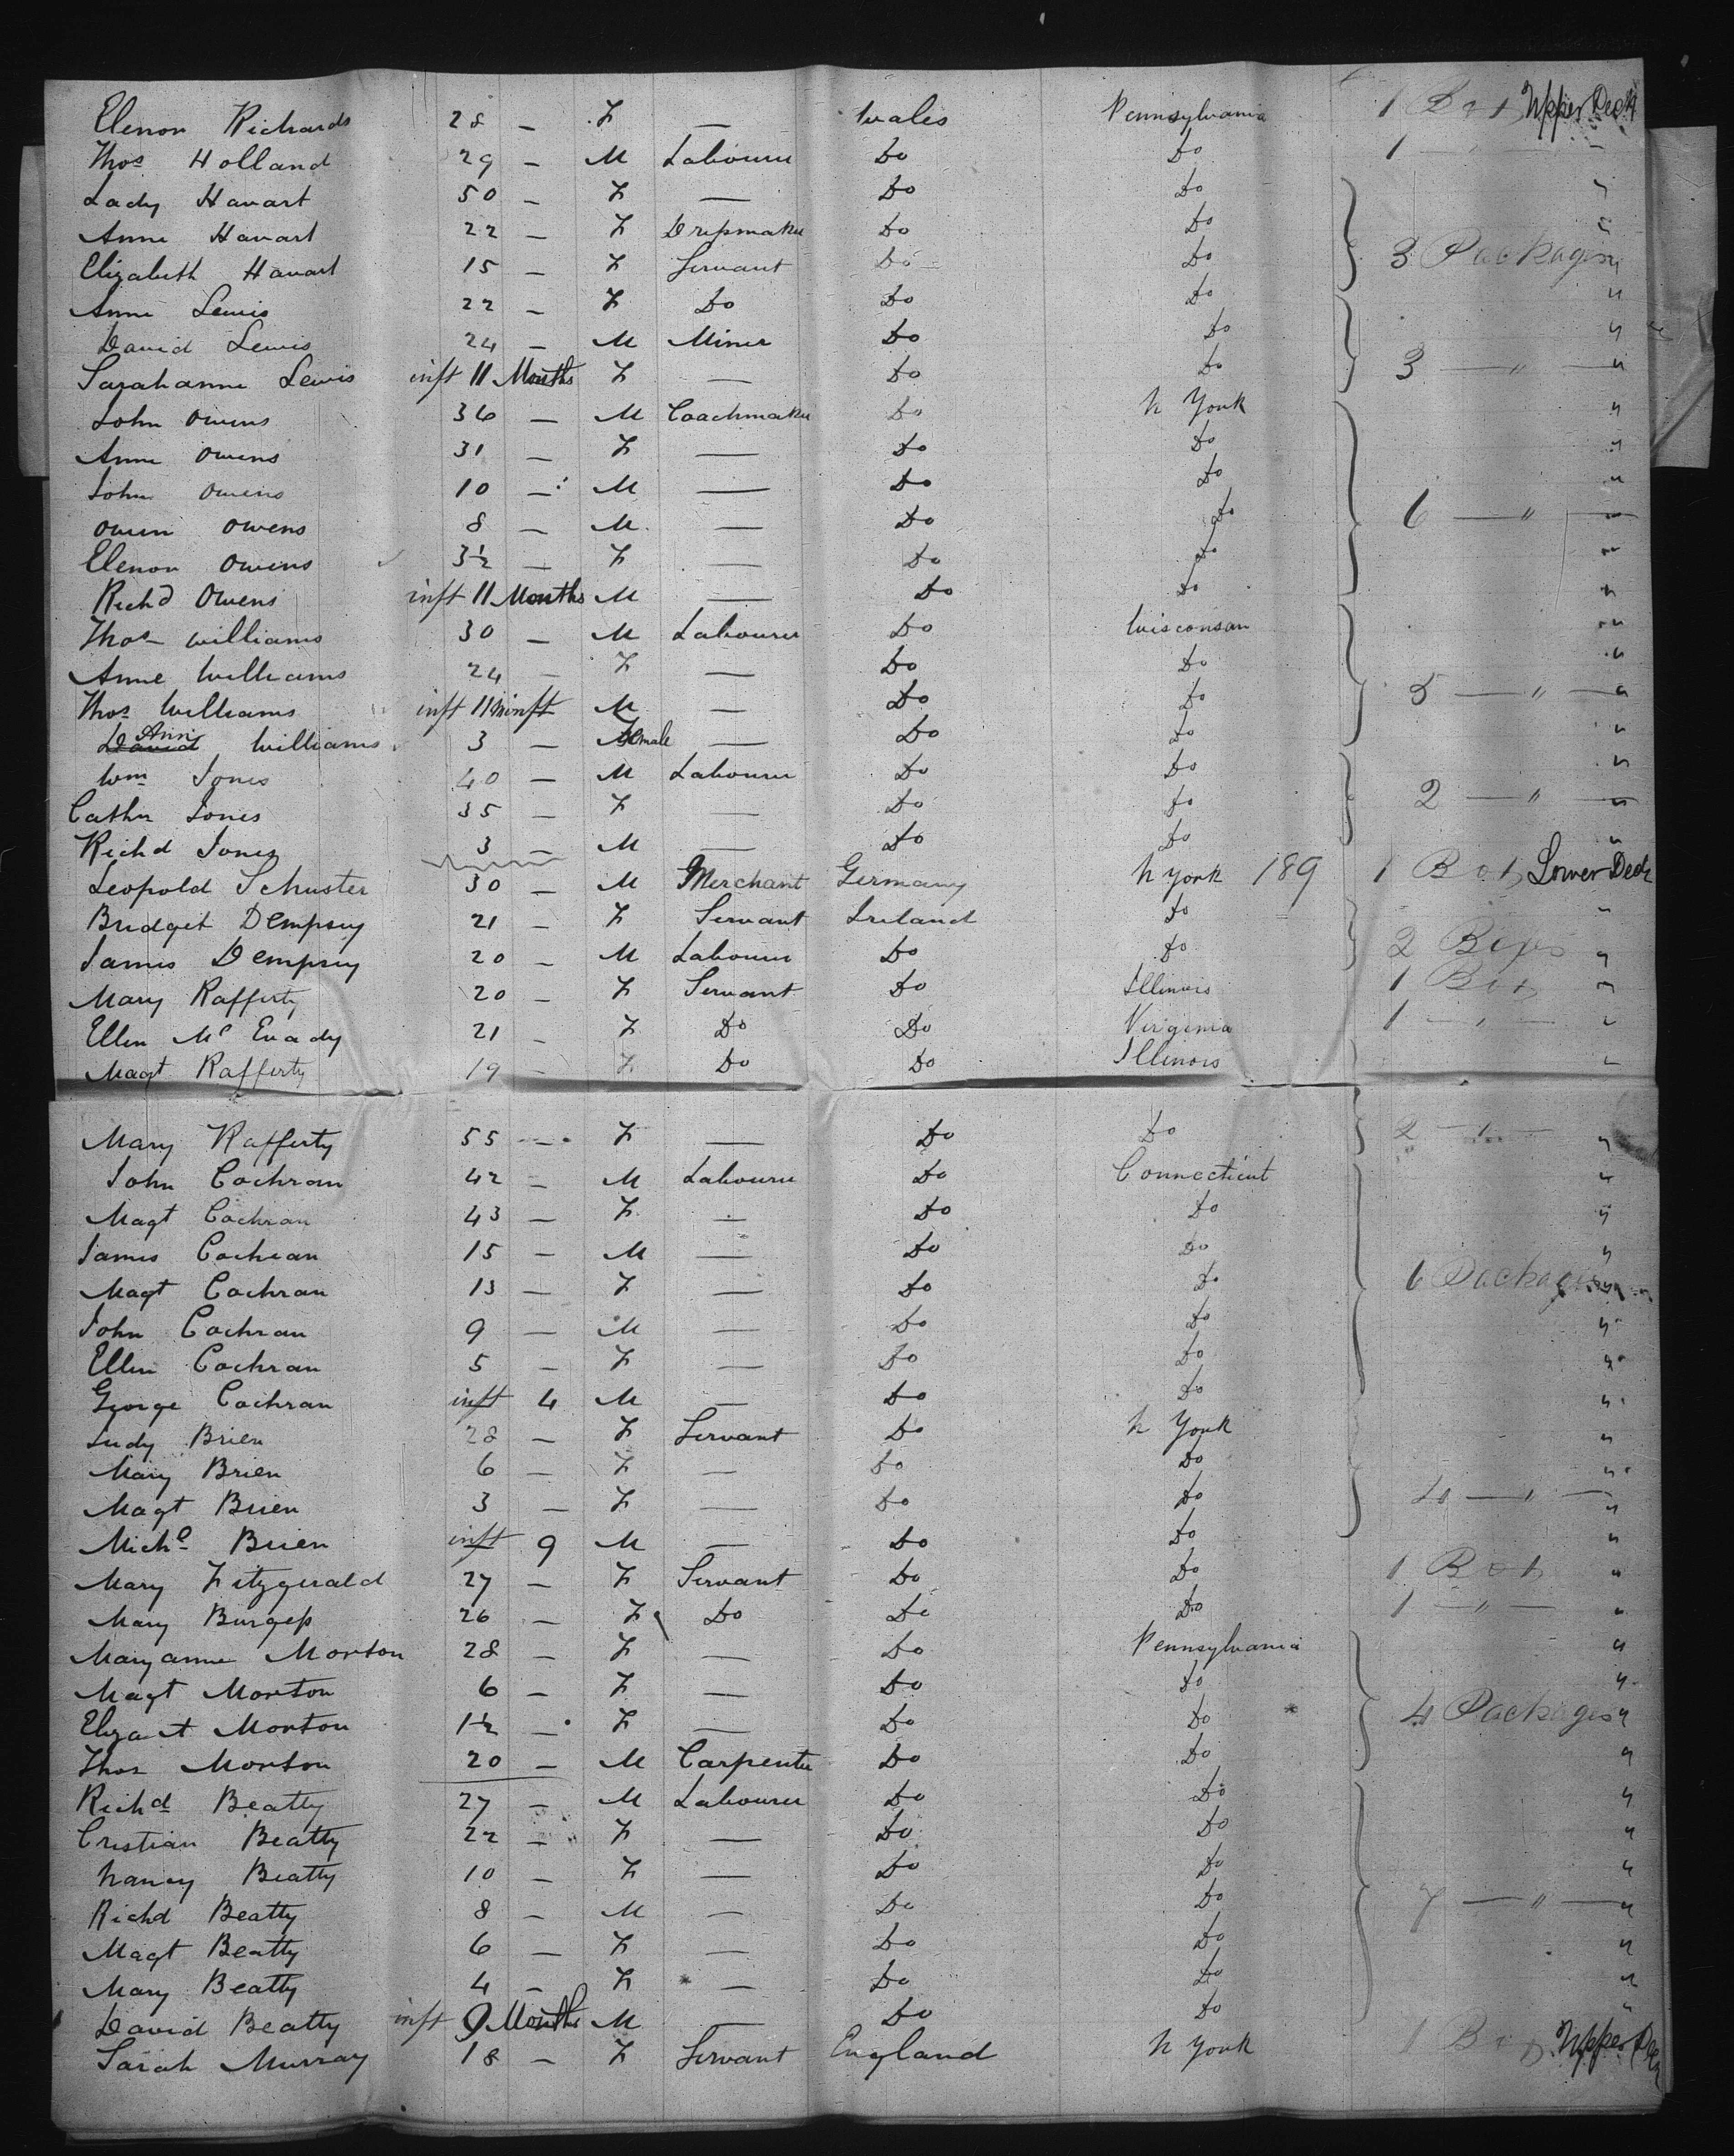 Elenor Richards 28 — F — Wales Pennsylvania 1 Box Upper Deck
Thos Holland 29 — M Labourer Do Do 1 — " —
Lady Havart 50 — F — Do Do "
Anne Havart 22 — F Dressmaker Do Do "
Elizabeth Havart 15 — F Servant Do Do 3 Packages "
Anne Lewis 22 — F Do Do Do "
David Lewis 24 — M Miner Do Do "
Sarahanne Lewis inft 11 Months F — Do Do 3 — " — "
John Owens 36 — M Coachmaker Do N York "
Anne Owens 31 — F — Do Do "
John Owens 10 — M — Do Do "
Owen Owens 8 — M — Do Do 6 — " — "
Elenor Owens 3½ — F — Do Do "
Richd Owens inft 11 Months M — Do Do "
Thos Williams 30 — M Labourer Do Wisconsan "
Anne Williams 24 — F — Do Do "
Thos Williams inft 11 M — Do Do 5 — " — "
David Ann Williams 3 — Female — Do Do "
Wm Jones 40 — M Labourer Do Do "
Cathr Jones 35 — F — Do Do 2 — " — "
Richd Jones 3 — M — Do Do "
Leopold Schuster 30 — M Merchant Germany N York 189 1 Box Lower Deck
Bridget Dempsey 21 — F Servant Ireland Do "
James Dempsey 20 — M Labourer Do Do 2 "
Mary Rafferty 20 — F Servant Do Illinois 1 Box "
Ellen Mc Evady 21 — F Do Do Virginia 1 — " — "
Magt Rafferty 19 — F Do Do Illinois "
Mary Rafferty 55 — F — Do Do 2 — " — "
John Cochran 42 — M Labourer Do Connecticut "
Magt Cochran 43 — F — Do Do "
James Cochran 15 — M — Do Do "
Magt Cochran 13 — F — Do Do 6 Packages "
John Cochran 9 — M — Do Do "
Ellen Cochran 5 — F — Do Do "
George Cochran inft 4 M — Do Do "
Judy Brien 28 — F Servant Do N York "
Mary Brien 6 — F — Do Do "
Magt Brien 3 — F — Do Do 4 — " — "
Michl Brien inft 9 M — Do Do "
Mary Fitzgerald 27 — F Servant Do Do 1 Box "
Mary Burgess 26 — F Do Do Do 1 — " — "
Maryanne Morton 28 — F — Do Pennsylvania "
Magt Morton 6 — F — Do Do "
Elizat Morton 1½ — F — Do Do 4 Packages "
Thos Morton 20 — M Carpenter Do Do "
Richd Beatty 27 — M Labourer Do Do "
Cristian Beatty 22 — F — Do Do "
Nancy Beatty 10 — F — Do Do "
Richd Beatty 8 — M — Do Do 7 — " — "
Magt Beatty 6 — F — Do Do "
Mary Beatty 4 — F — Do Do "
David Beatty inft 9 Months M — Do Do "
Sarah Murray 18 — F Servant England N York 1 Box Upper Deck